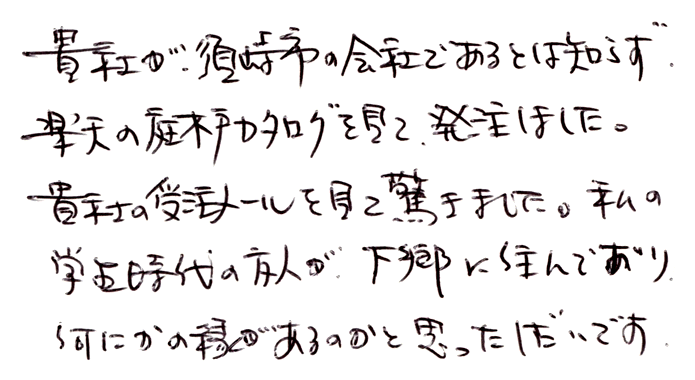 貴社が須崎市の会社であるとは知らず
楽天の庭木戸カタログを見て、発注しました。
貴社の受注メールを見て驚きました。私の
学生時代の友人が下郷に住んでおり
何にかの縁があるのかと思ったしだいです